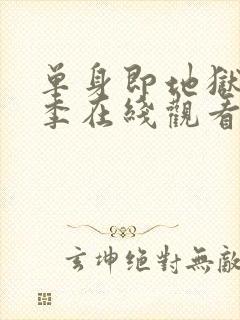 單身即地獄
季在綫觀看
玄坤絕對無敵